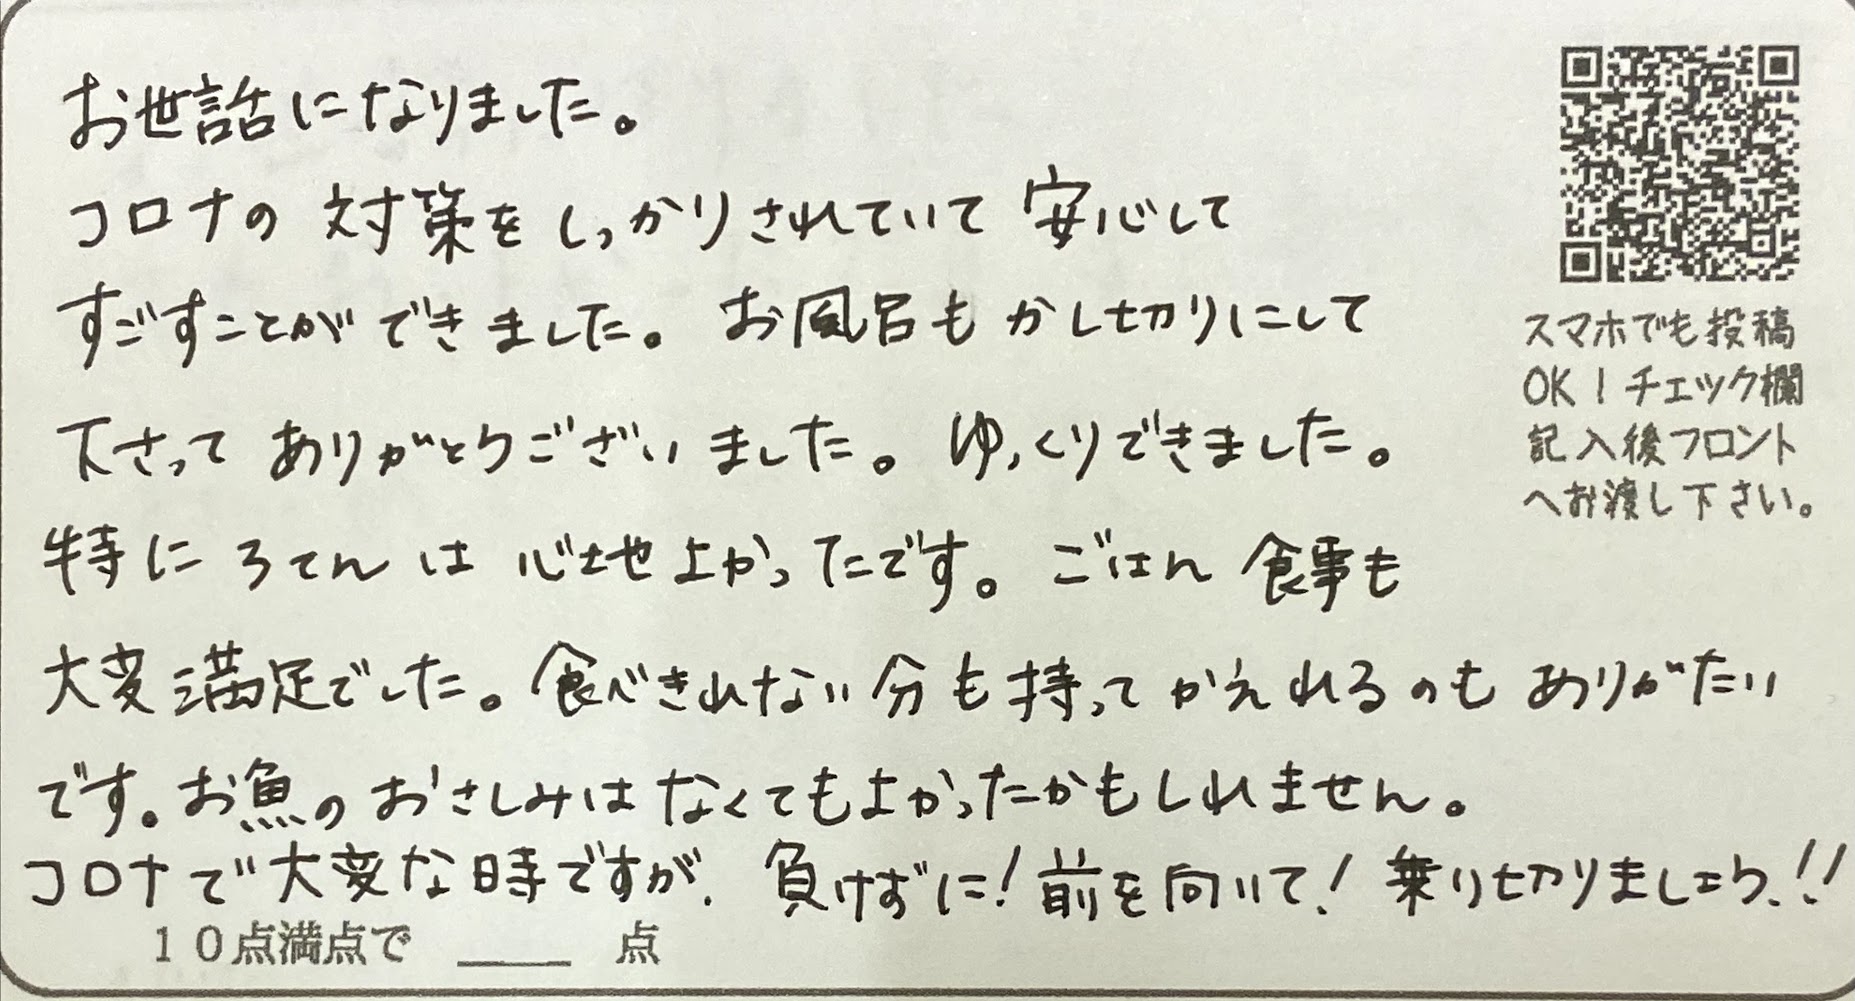 お世話になりました。
コロナの対策をしっかりされていて安心して
すごすことができました。お風呂もかし切りにして
下さってありがとうございました。ゆっくりできました。
特にろてんは心地よかったです。ごはん食事も
大変満足でした。食べきれない分も持ってかえれるのもありがたい
です。お魚のおさしみはなくてもよかったかもしれません。
コロナで大変な時ですが、負けずに!前を向いて!乗り切りましょう!!
10点満点で ____ 点
スマホでも投稿
OK!チェック欄
記入後フロント
へお渡し下さい。